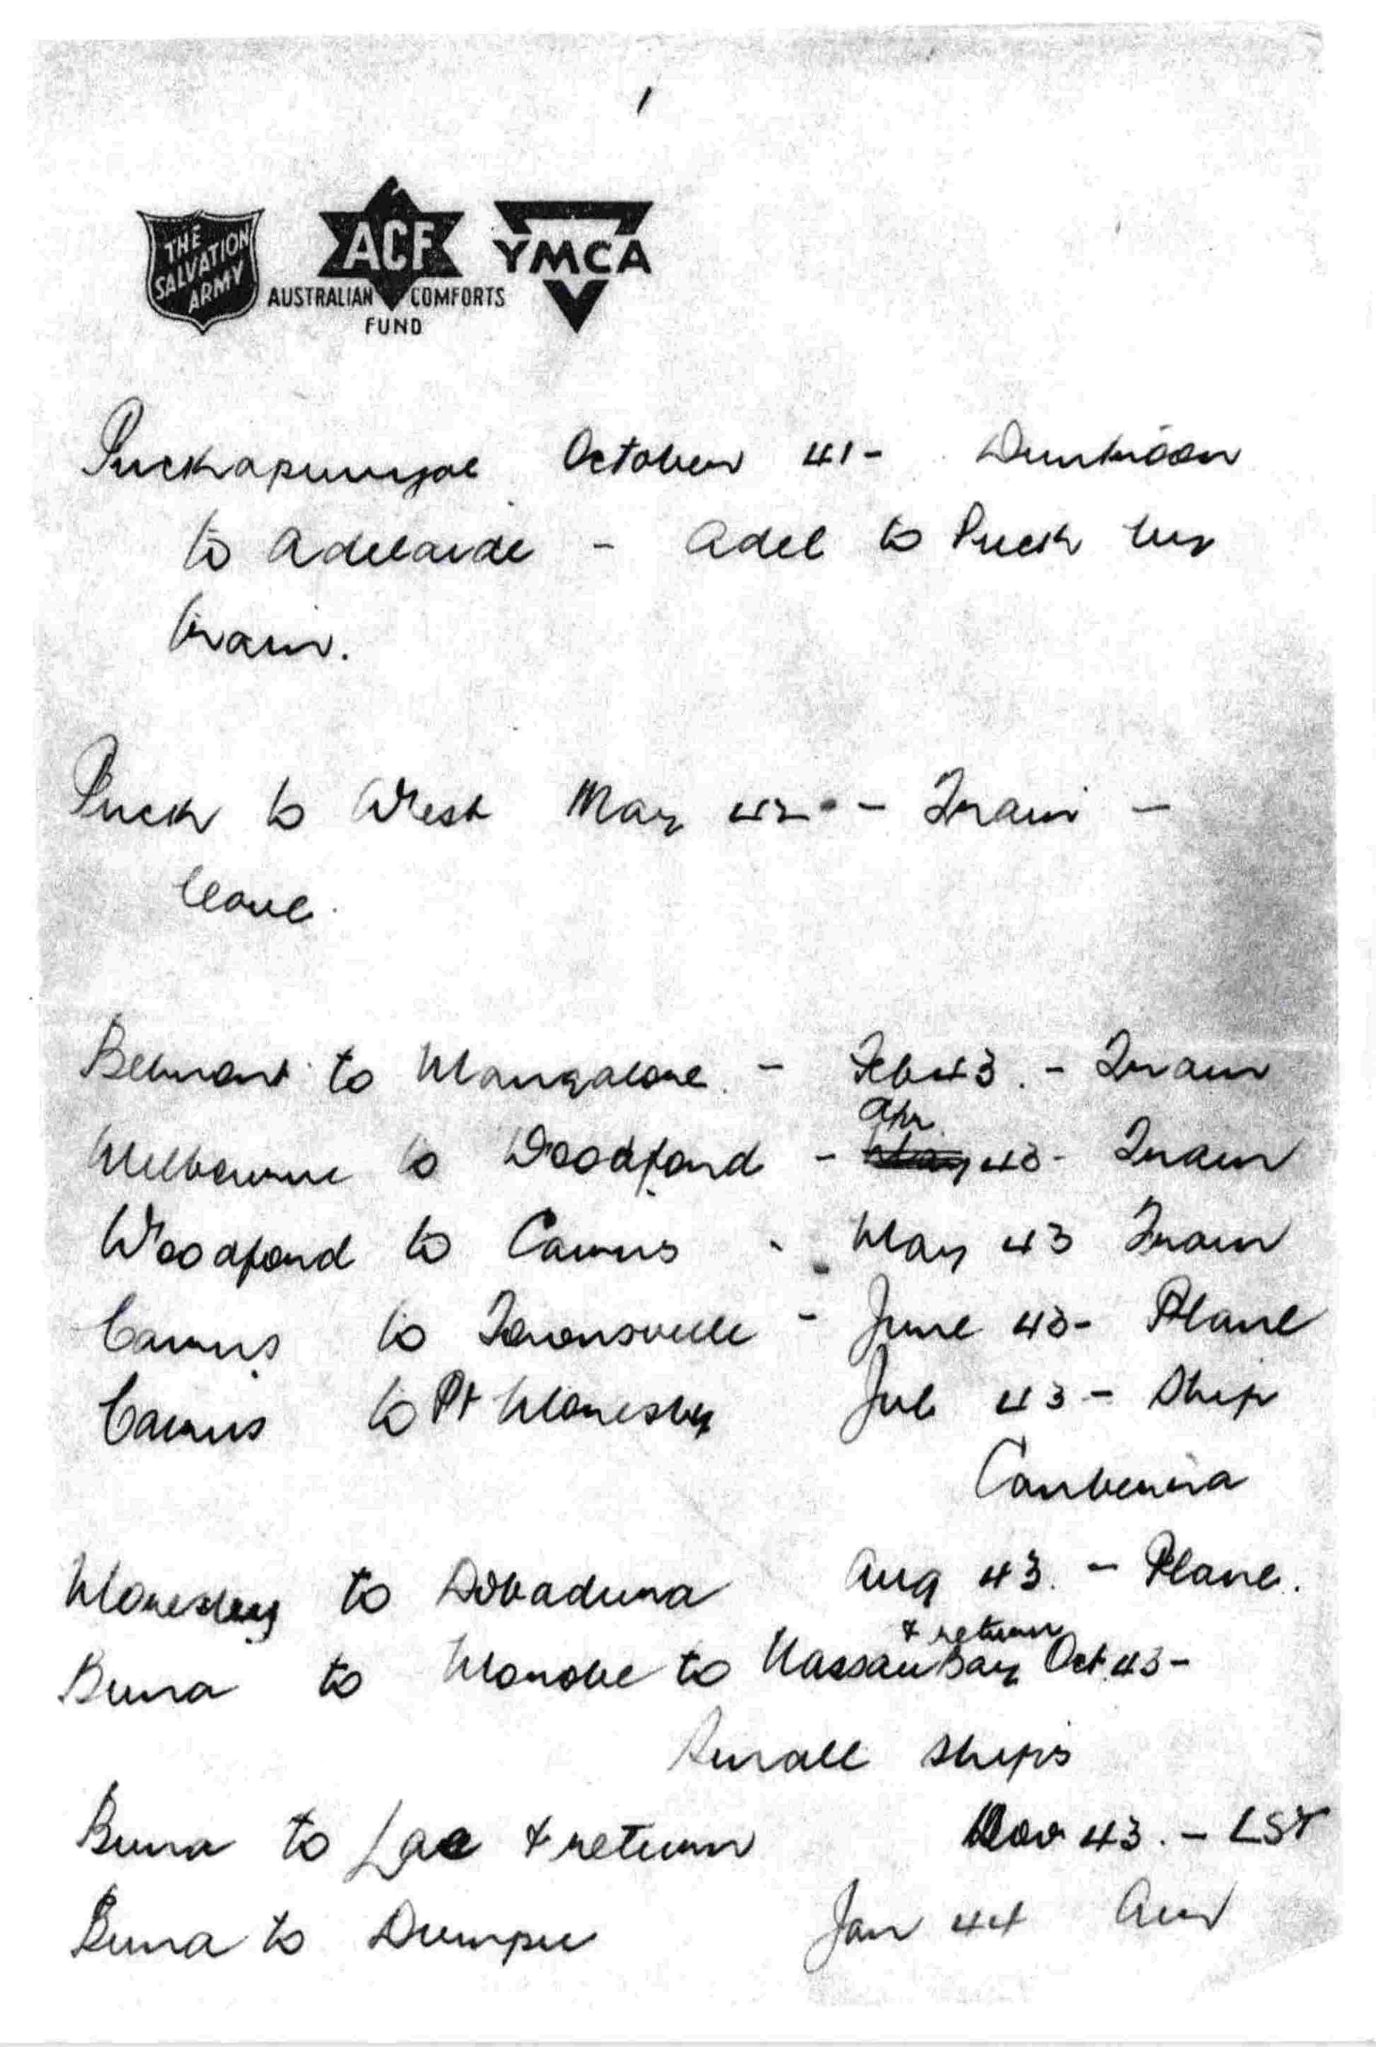 1
THE SALVATION ARMY
ACF
AUSTRALIAN COMFORTS FUND
YMCA
Puckapunyal October 41 - Duntroon
to Adelaide - Adel to Puck by
train.
Puck to West May 42 - Train -
leave.
Belmont to Mangalore. - Feb 43. - Train
Apr
Melbourne to Woodford - May 43 - Train
Woodford to Cairns - May 43 Train
Cairns to Townsville - June 43 - Plane
Cairns to Pt Moresby Jul 43 - Ship
Canberra
Moresby to Dobadura Aug 43. - Plane.
& return
Buna to Morobe to Nassau Bay Oct 43 -
Small ships
Buna to Lae & return Nov 43. - LST
Buna to Dumpu Jan 44 Air